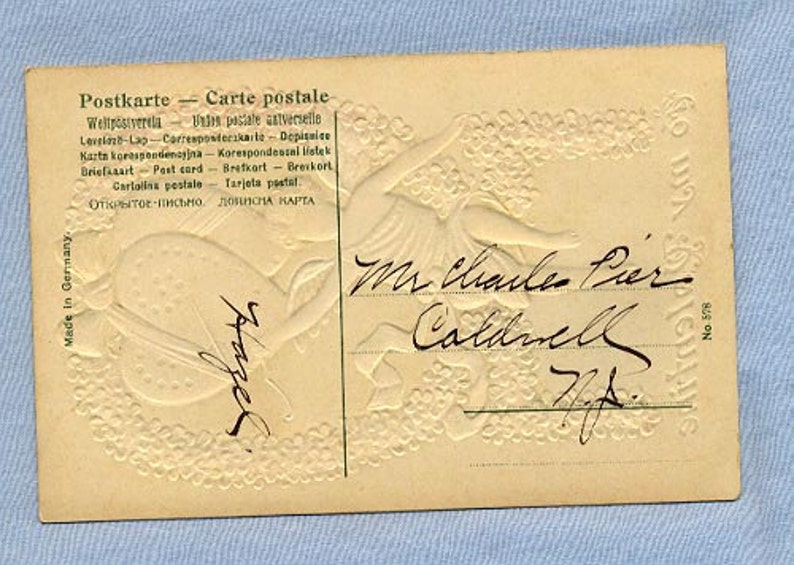 Postkarte — Carte postale
Weltpostverein — Union postale universelle
Levelező-Lap — Correspondenzkarte — Dopisnice
Karta korespondencyjna — Korespondenčni listek
Briefkaart — Post card — Brefkort — Brevkort
Cartolina postale — Tarjeta postal.
ОТКРЫТОЕ-ПИСЬМО. ДОПИСНА КАРТА
Made in Germany.
Hazel.
Mr Charles Pier
Caldwell
N.J.
No. 578
To my Valentine